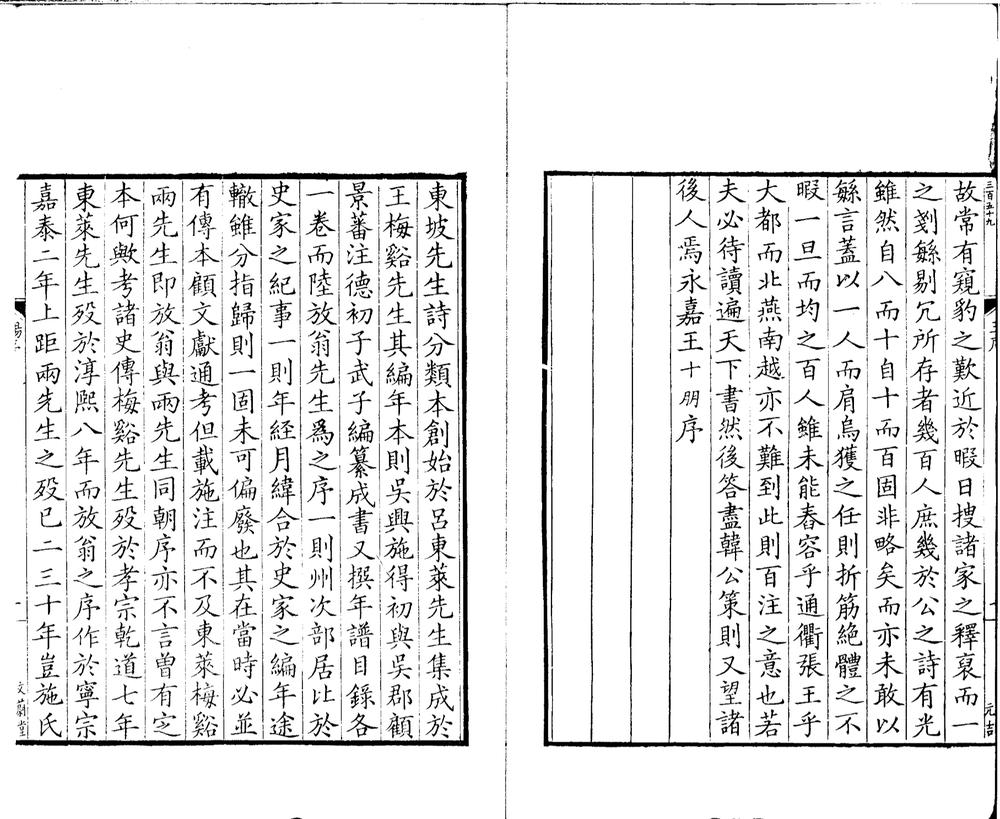 三百五十九
元喆
故常有窺豹之歎近於暇日搜諸家之釋裒而一
之剗繇剔冗所存者幾百人庶幾於公之詩有光
雖然自八而十自十而百固非略矣而亦未敢以
繇言蓋以一人而肩烏獲之任則折筋絕體之不
暇一旦而均之百人雖未能舂容乎通衢張王乎
大都而北燕南越亦不難到此則百注之意也若
夫必待讀遍天下書然後答盡韓公策則又望諸
後人焉永嘉王十朋序
東坡先生詩分類本創始於呂東萊先生集成於
王梅谿先生其編年本則吳興施得初與吳郡顧
景蕃注德初子武子編纂成書又撰年譜目錄各
一卷而陸放翁先生爲之序一則州次部居比於
史家之紀事一則年經月緯合於史家之編年途
轍雖分指歸則一固未可偏廢也其在當時必並
有傳本顧文獻通考但載施注而不及東萊梅谿
兩先生即放翁與兩先生同朝序亦不言曾有定
本何歟考諸史傳梅谿先生歿於孝宗乾道七年
東萊先生歿於淳熙八年而放翁之序作於寧宗
嘉泰二年上距兩先生之歿已二三十年豈施氏
文蘭堂